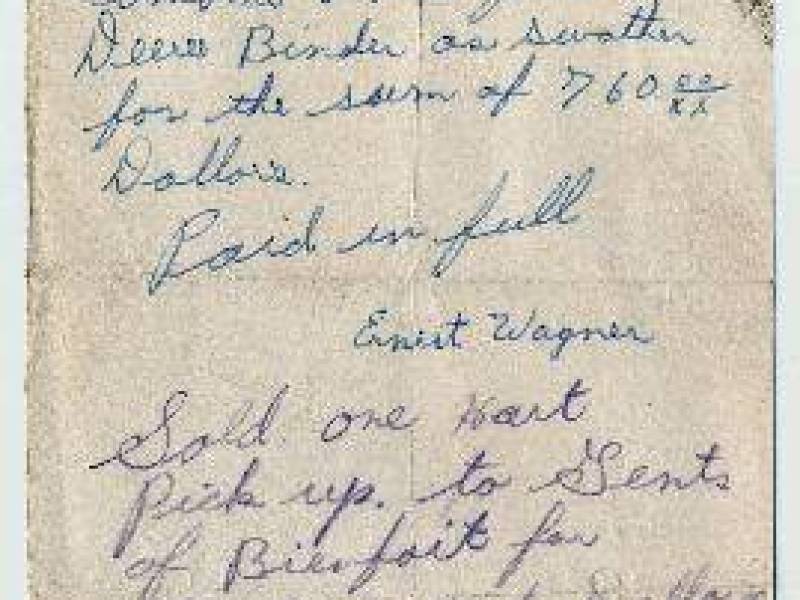 Deere Binder as swather
for the sum of 760 00/xx
Dollars.
Paid in full
Ernest Wagner
Sold one Hart
Pick up. to Gents
of Bienfait for